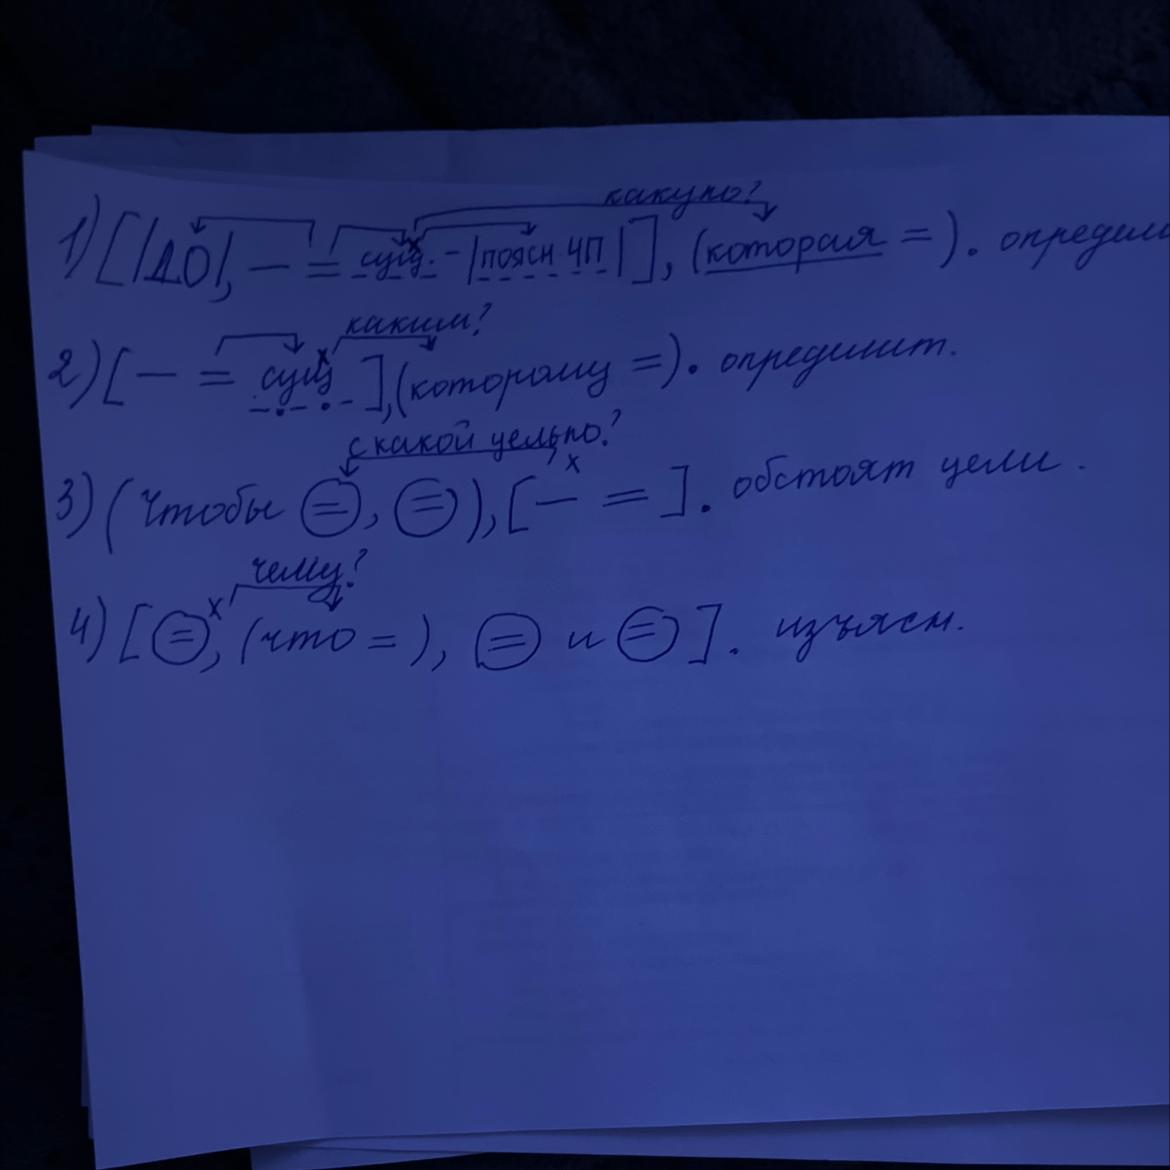 какую?
1) [|ДО|, — = сущ. - |поясн. ЧП|], (которая =). определ
каким?
2) [ — = сущ ], (которому =). определит.
с какой целью?
3) (чтобы =, =), [ — = ]. обстоят цели.
чему?
4) [=, (что = ), = и =]. изъясн.